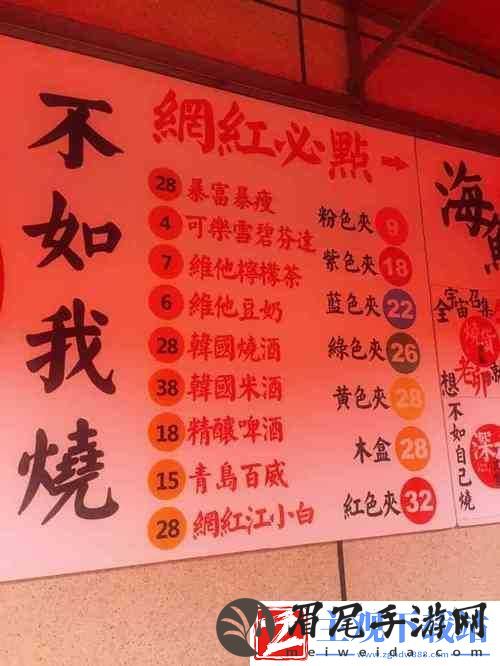 不如我燒
網紅必點
28 暴富暴瘦
4 可樂雪碧芬達
7 維他檸檬茶
6 維他豆奶
28 韓國燒酒
38 韓國米酒
18 精釀啤酒
15 青島百威
28 網紅江小白
粉色夾 9
紫色夾 18
藍色夾 22
綠色夾 26
黃色夾 28
木盒 28
紅色夾 32
海
全宇宙召集
想不如自己燒
深
眉尾手游网
meiweida.com